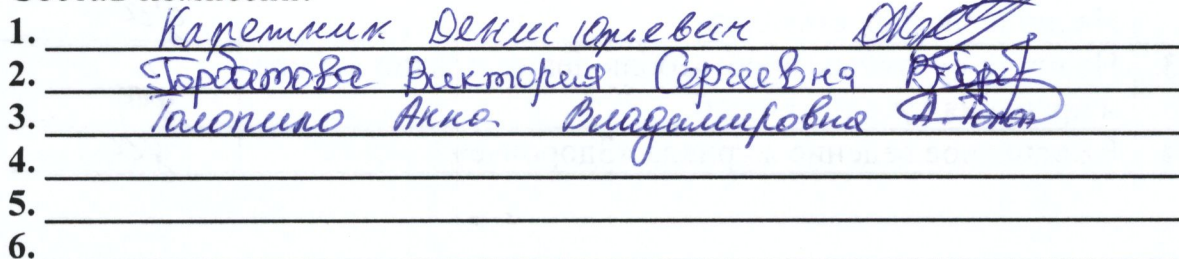 1. Каретник Денис Юрьевич
2. Горбатова Виктория Сергеевна
3. Анна Владимировна
4.
5.
6.